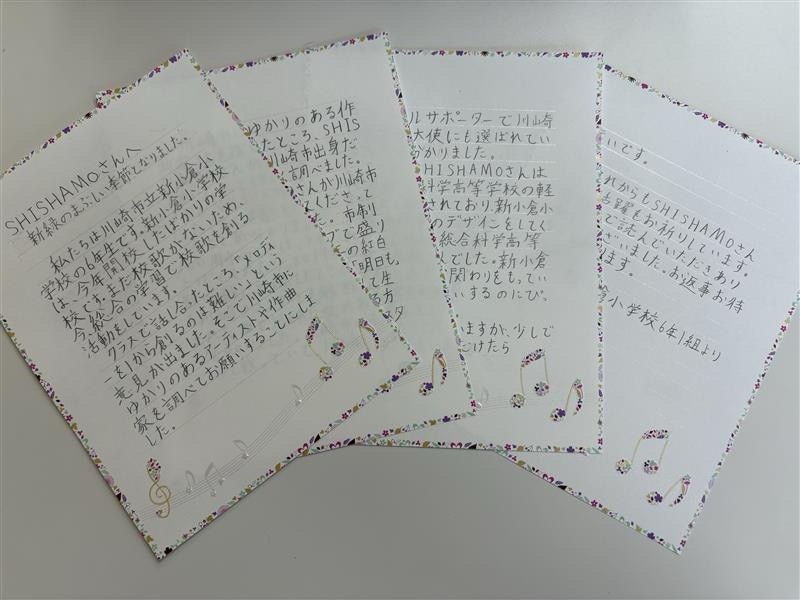 SHISHAMOさんへ
新緑のまぶしい季節となりました。
私たちは川崎市立新小倉小
学校の6年生です。新小倉小学校
は、今年開校したばかりの学
校です。まだ校歌がないため、
今総合の学習で校歌を創る
活動をしています。
クラスで話し合ったところ、「メロディ
ーを1から創るのは難しい」という
意見が出ました。そこで川崎市に
ゆかりのあるアーティストや作曲
家を調べてお願いすることにしま
した。
ゆかりのある作
たところ、SHIS
川崎市出身だ
調べました。
さんが川崎市
くださって
た。市制
ブで盛り
の紅白
「明日も
て生
る方
スタ
ルサポーターで川崎
大使にも選ばれてい
かりました。
SHISHAMOさんは
科学高等学校の軽
されており、新小倉小
のデザインをしてく
総合科学高等
んでした。新小倉
関わりをもってい
いするのにぴ
いますが、少しで
だけたら
いです。
れからもSHISHAMOさん
活躍をお祈りしています。
で読んでいただきあり
ざいました。お返事お待
ります。
倉小学校6年1組より